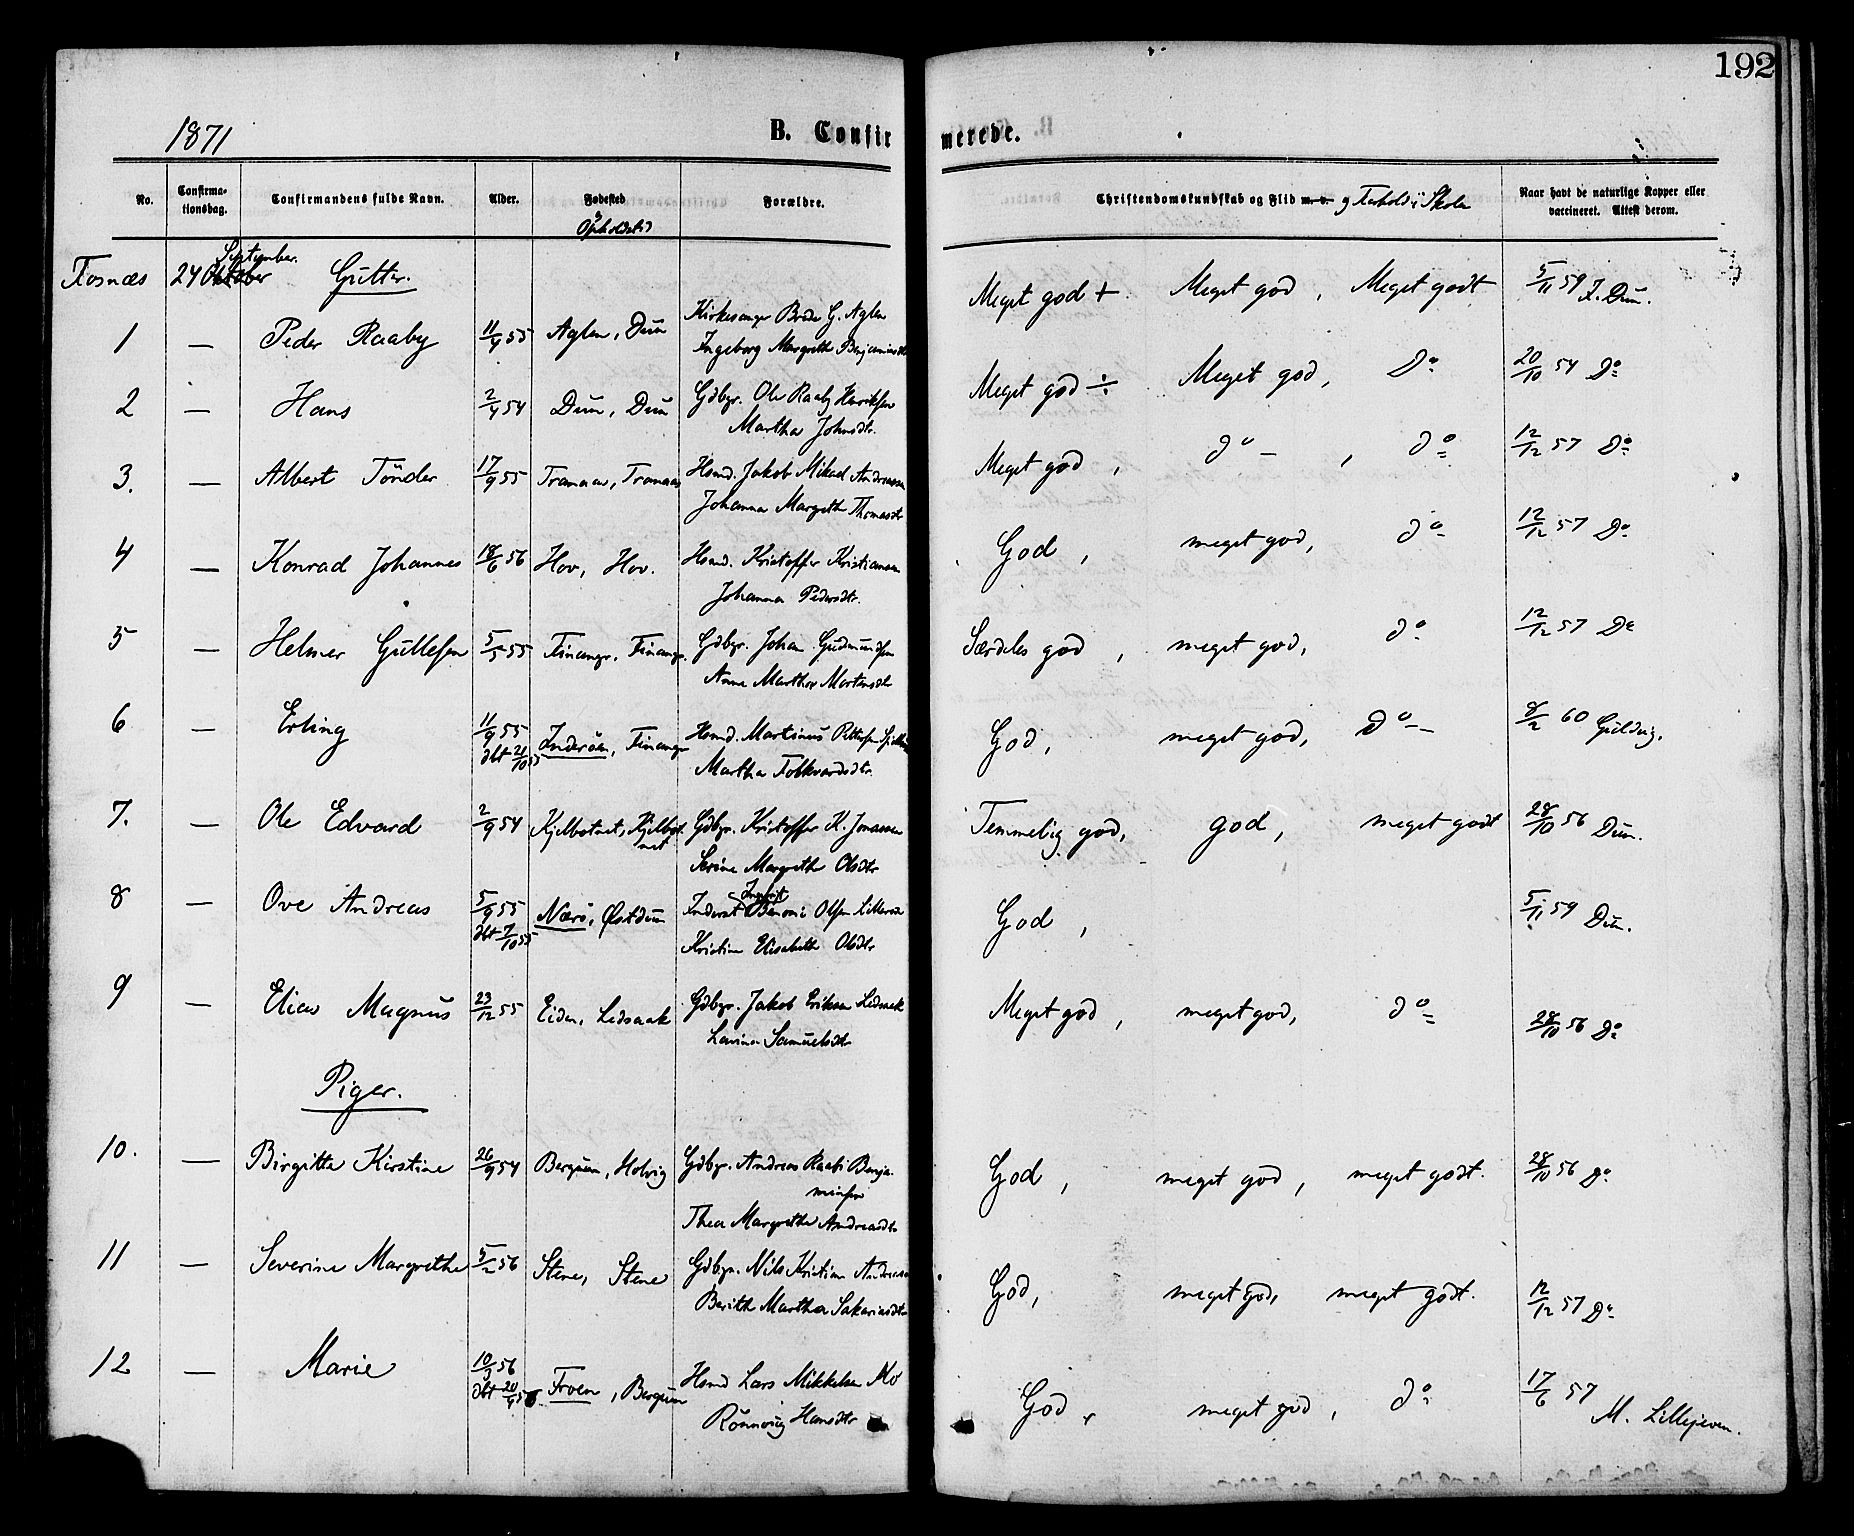 192
1871
B. Confirmerede.
No. Confirmationsdag. Confirmandens fulde Navn. Alder. Fødested Forældre. Christendomskundskab og Flid m. v. Naar havt de naturlige Kopper eller vaccineret. Attest derom.
og Opholdsted og Forhold i Skole
September.
Fosnæs 24 Oktober Gutter.
1 — Peder Raaby 11/4 55 Aglen, Dun Kirkesanger Brede G. Aglen Meget god + Meget god, Meget godt 5/11 59 Z. Dun.
Ingeborg Margrethe Benjaminsdtr
2 — Hans 2/4 54 Dun, Dun Gdbgr. Ole Raaby Henriksen Meget god ÷ Meget god, Do 20/10 54 Do
Martha Johnsdtr.
3. — Albert Tönder 17/9 55 Tranaas, Tranaas Hsmd. Jakob Mikael Andreassen Meget god, do — , do 12/12 57 Do
Johanna Margrethe Thomasdtr
4 — Konrad Johannes 18/6 56 Hov, Hov. Hsmd. Kristoffer Kristiansen God, meget god, do 12/12 57 Do
Johanna Pedersdtr.
5 — Helmer Gullesen 5/5 55 Finangr, Finangr. Gdbgr. Johan Gudmundsen Særdeles god, meget god, do 12/12 57 Do
Anne Martha Mortensdtr
6 — Erling 11/9 55 Inderöen, Finangr Hsmd. Martinus Pettersen God, meget god, Do — 8/2 60 Guldvig.
dbt 21/10 55 Martha Folkvardsdtr.
7. — Ole Edvard 2/9 54 Kjelbotnet, Kjelbotnet Gdbgr. Kristoffer K. Jonassen Temmelig god, god, meget godt 28/10 56 Dun.
Serine Margrethe Olsdtr
8 — Ove Andreas 5/9 55 Nærö, Östdun Inderst Benoni Olsen God, 5/11 59 Dun.
dbt 7/10 55 Kristine Elisabeth Olsdtr
9 — Elias Magnus 23/12 55 Eiden, Ledsaak Gdbgr. Jakob Eriksen Ledsaak Meget god, meget god, do 28/10 56 Do
Lavina Samuelsdtr
Piger.
10. — Birgitte Kirstine 26/9 54 Bergum, Holvig Gdbgr. Andreas Raabi Benjaminsen God, meget god, meget godt. 28/10 56 Do
Thea Margrethe Andreasdtr
11 — Severine Margrethe 5/2 56 Stene, Stene Gdbgr. Nils Kristian Andreasen God, meget god, meget godt. 12/12 57 Do
Berith Martha Sakariasdtr
12 — Marie 10/3 56 Froen, Bergum Hsmd Lars Mikkelsen Mo God, meget god, do 17/6 57 M. Lillejeven.
dbt 20/4 56 Rönnoug Hansdtr